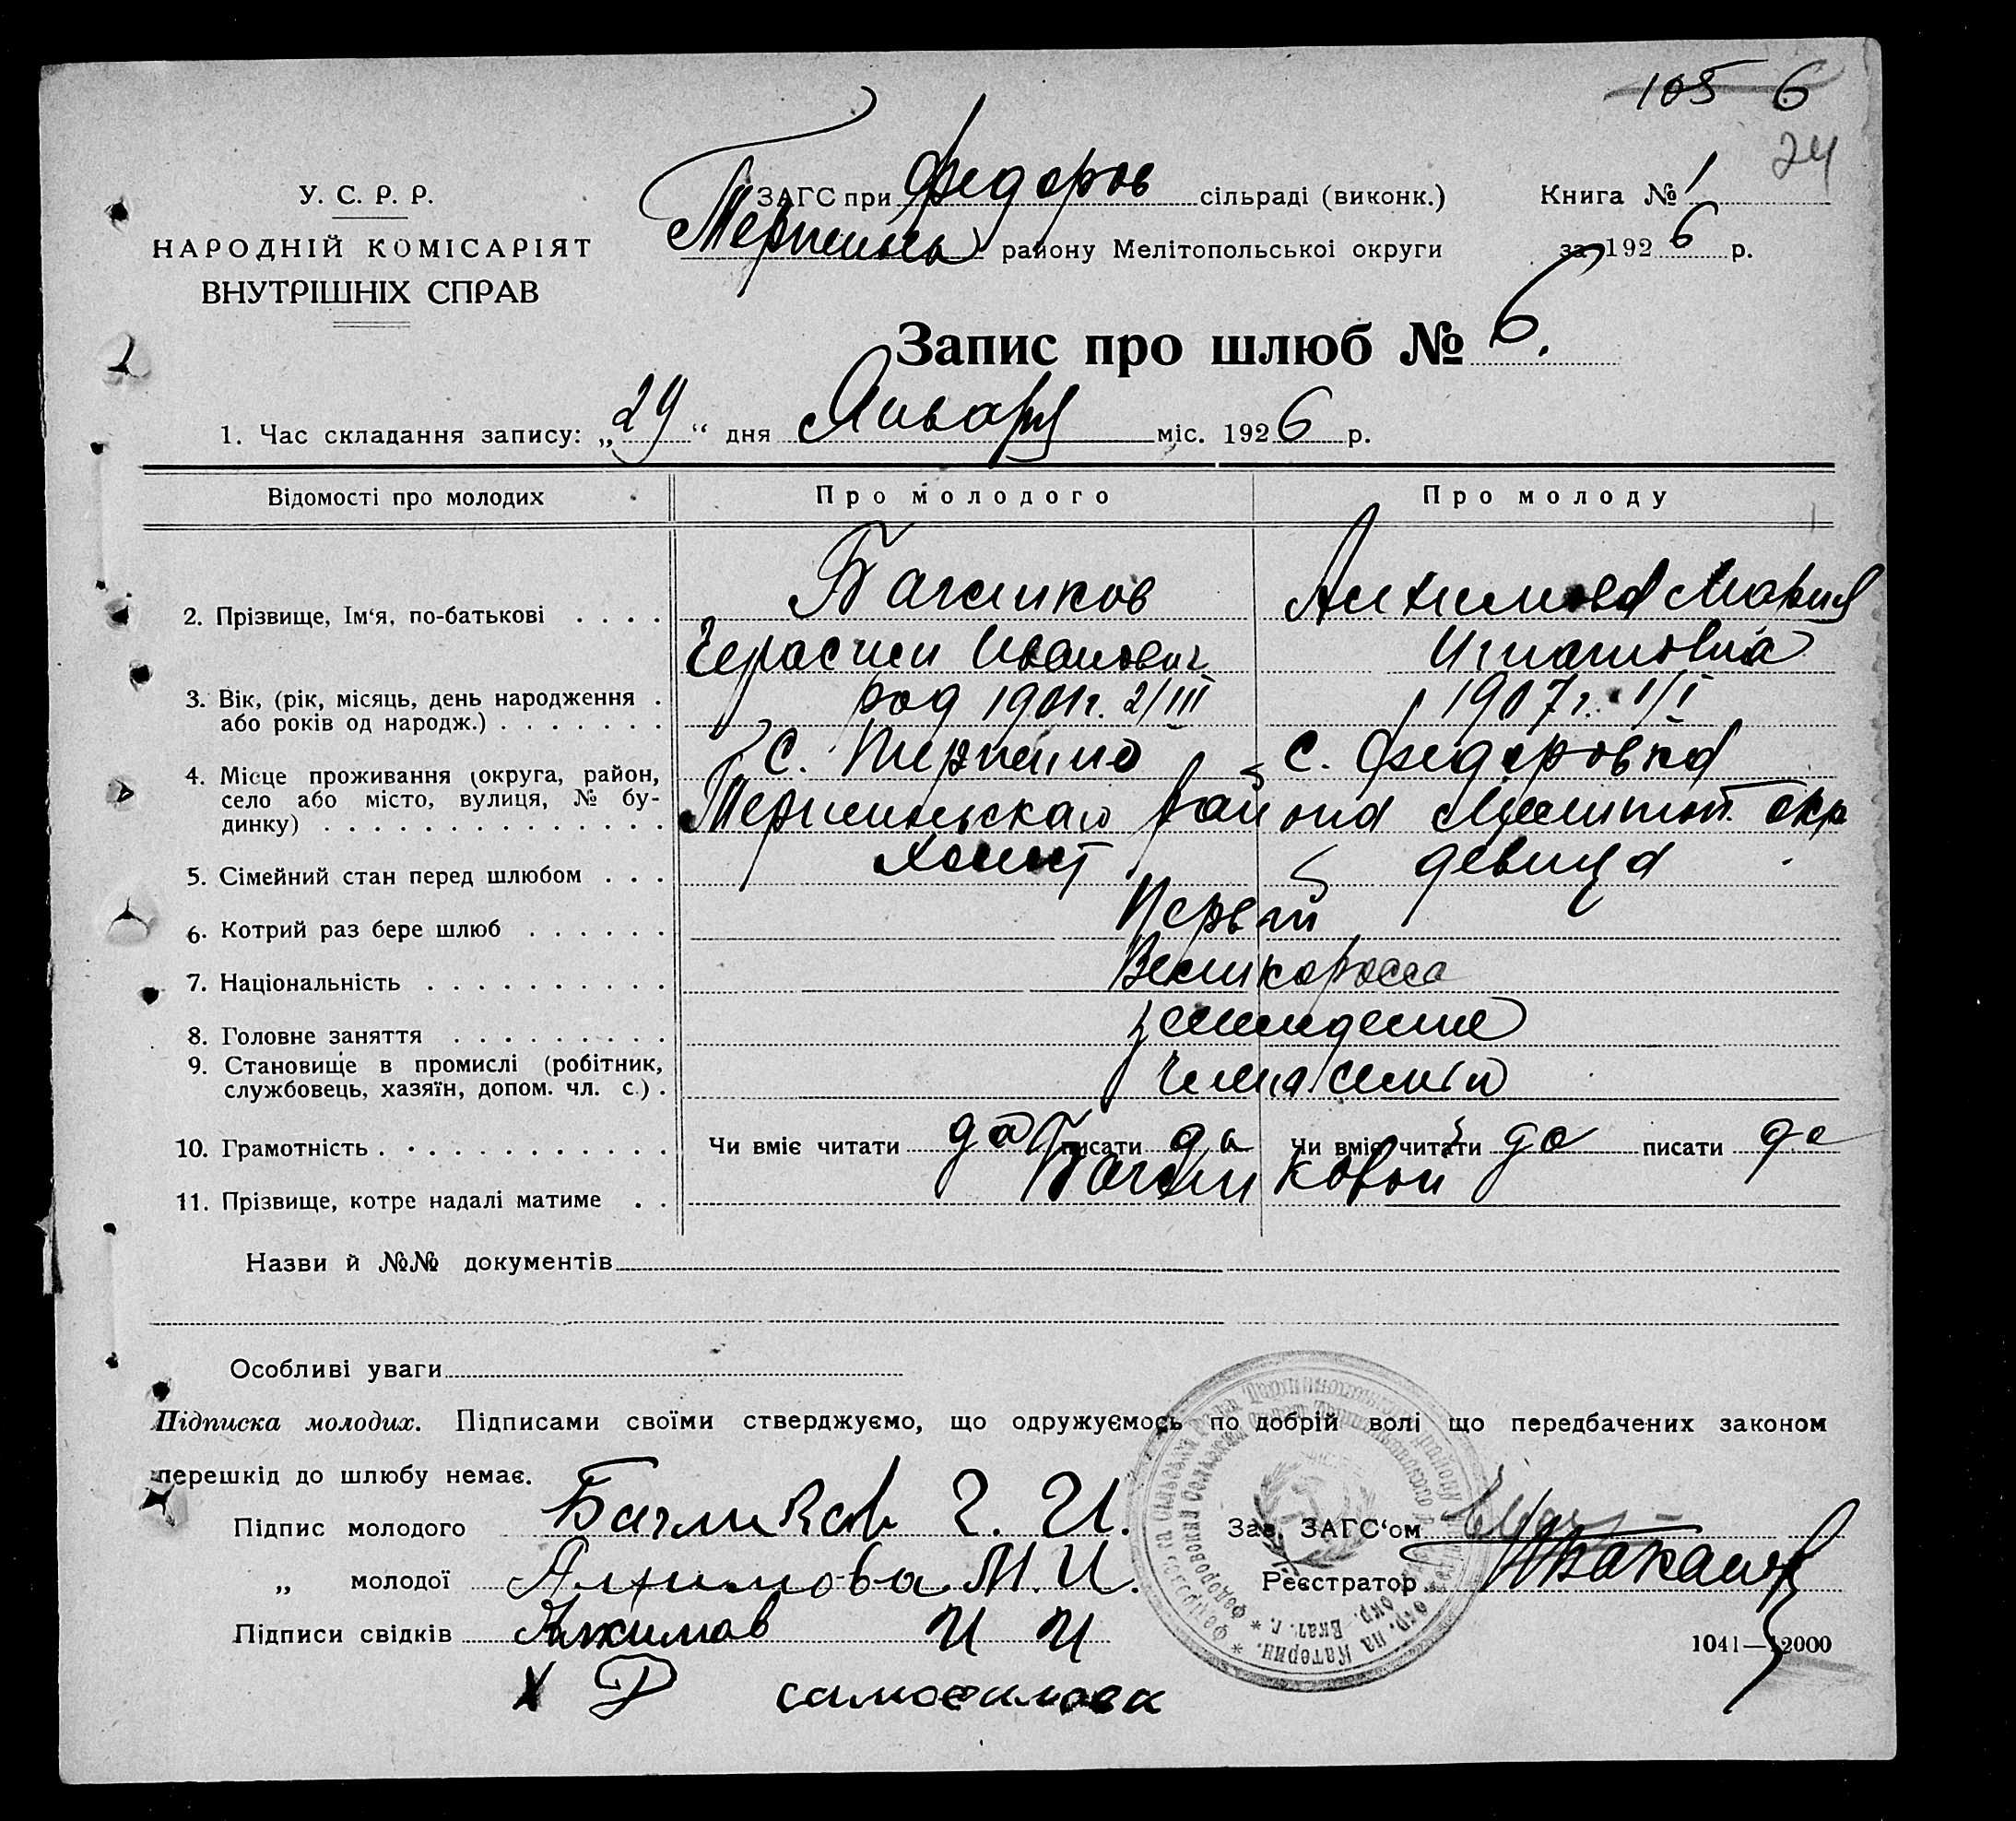 105 6
24
У. С. Р. Р.
НАРОДНІЙ КОМІСАРІЯТ
ВНУТРІШНІХ СПРАВ
ЗАГС при Федоров сільраді (виконк.)
Терпинь району Мелітопольської округи
Книга № 1
за 1926 р.
Запис про шлюб № 6.
1. Час складання запису: „29“ дня Января міс. 1926 р.
Відомості про молодих Про молодого Про молоду
2. Прізвище, Ім‘я, по-батькові . . . . Багликов Анхимова Мария
Герасим Иванович Игнатовна
3. Вік, (рік, місяць, день народження . род 1901г. 2/III 1907г. 1/I
або років од народж.) . . . . . . .
4. Місце проживання (округа, район, с. Терпение с. Федоровка
село або місто, вулиця, № бу- Терпеньскаго района Мелитоп. окр
динку) . . . . . . . . . . . . . .
5. Сімейний стан перед шлюбом . . . холост девица
6. Котрий раз бере шлюб . . . . . . Первый
7. Національність . . . . . . . . . . Великоросса
8. Головне заняття . . . . . . . . . земледелие
9. Становище в промислі (робітник, члена семьи
службовець, хазяїн, допом. чл. с.) .
10. Грамотність . . . . . . . . . . . . Чи вміє читати да писати да Чи вміє читати да писати да
11. Прізвище, котре надалі матиме . . Багликовой
Назви й №№ документів
Особливі уваги
Підписка молодих. Підписами своїми стверджуємо, що одружуємось по добрій волі що передбачених законом
перешкід до шлюбу немає.
Підпис молодого Багликов Г. И.
„ молодої Алхимова М. И.
Підписи свідків Алхимов И И
Зав. ЗАГС‘ом
Реєстратор
1041—12000